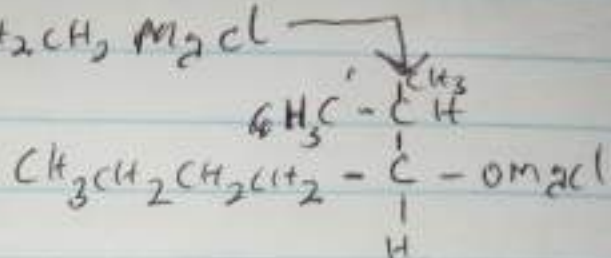 H₂CH₂ MgCl
CH₃
H₃C - C H
CH₃CH₂CH₂CH₂ - C - OMgCl
H